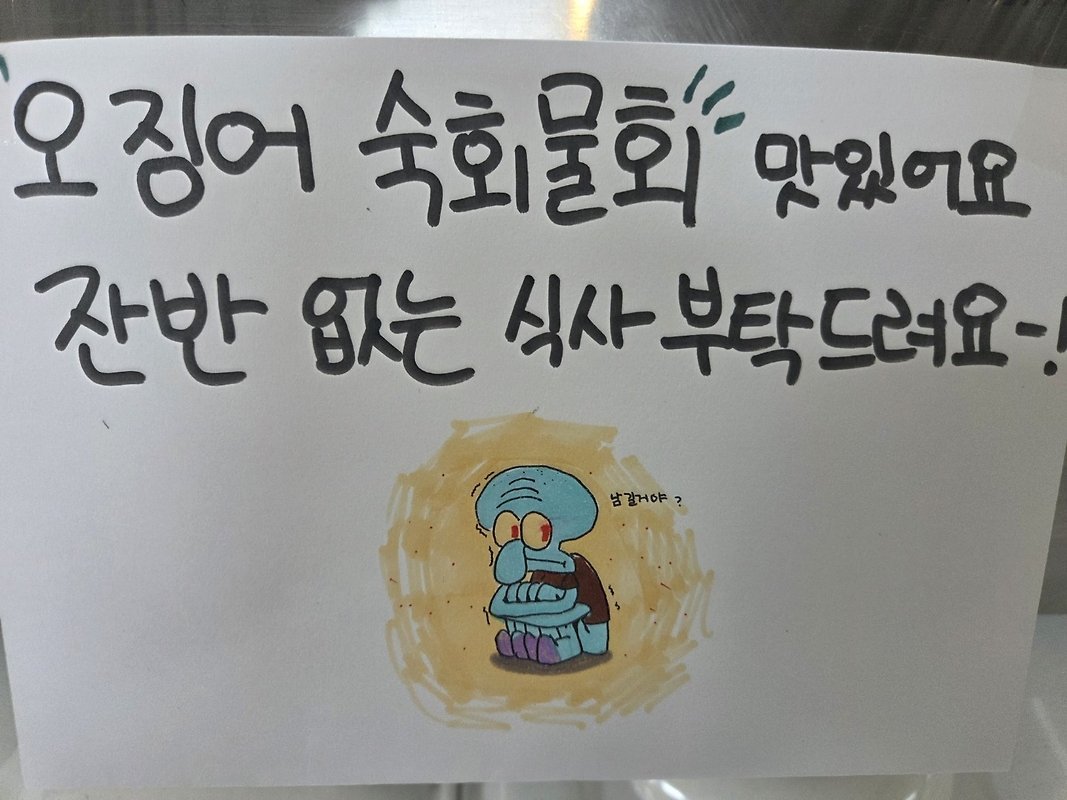 오징어 숙회물회 맛있어요
잔반 없는 식사 부탁드려요~!
남길거야?